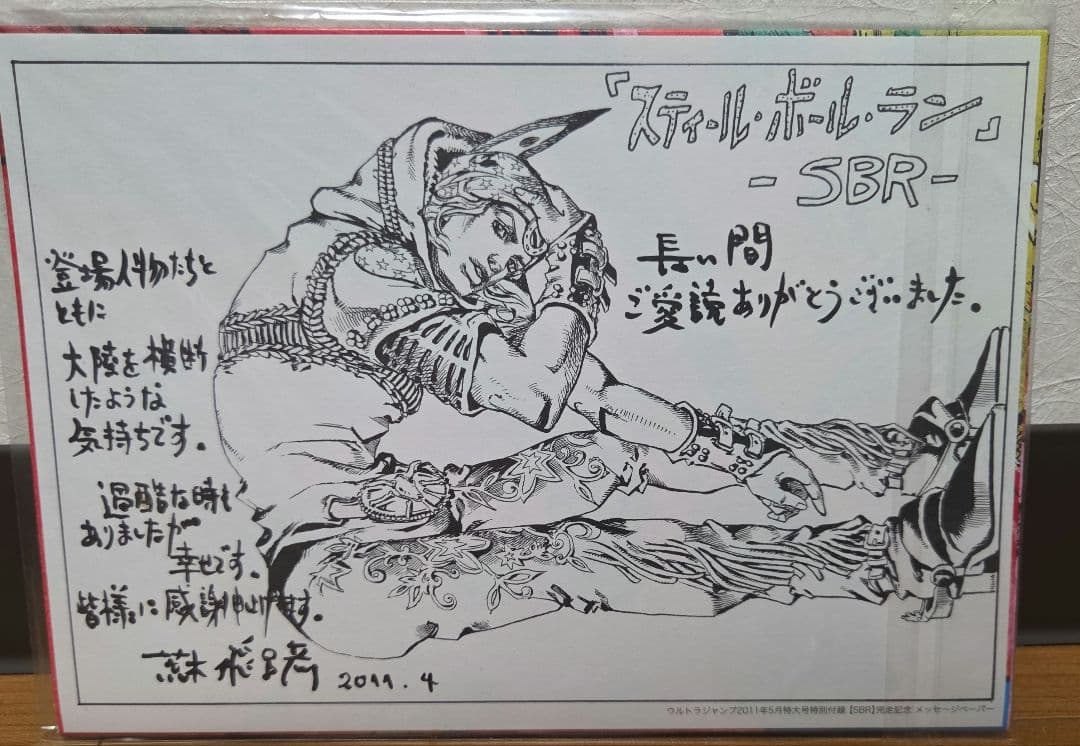 『スティール・ボール・ラン』
-SBR-
長い間
ご愛読ありがとうございました。
登場人物たちと
ともに
大陸を横断
したような
気持ちです。
過酷な時も
ありましたが
幸せです。
皆様に感謝申し上げます。
荒木飛呂彦
2011.4
ウルトラジャンプ2011年5月特大号特別付録【SBR】完走記念 メッセージペーパー